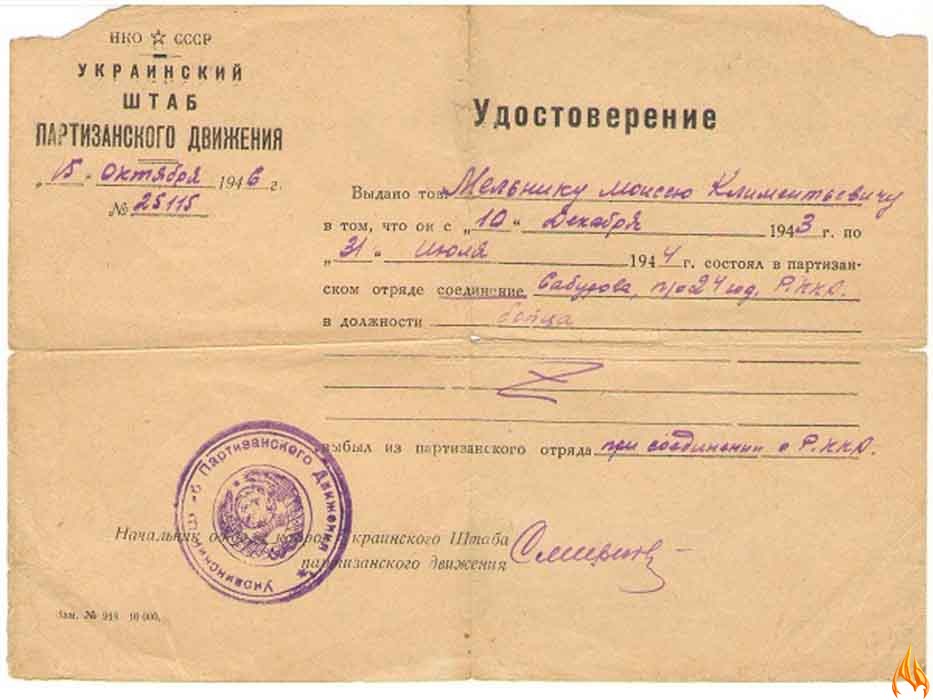 НКО ☆ СССР
УКРАИНСКИЙ
ШТАБ
ПАРТИЗАНСКОГО ДВИЖЕНИЯ
„15" Октября 1946 г.
№ 25115
Удостоверение
Выдано тов. Мельнику Моисею Климентьевичу
в том, что он с „10" Декабря 1943 г. по
„31" Июля 1944 г. состоял в партизан-
ском отряде соединение Сабурова,
в должности бойца
выбыл из партизанского отряда при соединении с
Украинский Штаб Партизанского Движения
Начальник отдела кадров Украинского Штаба
партизанского движения
Зак. № 948 10 000.